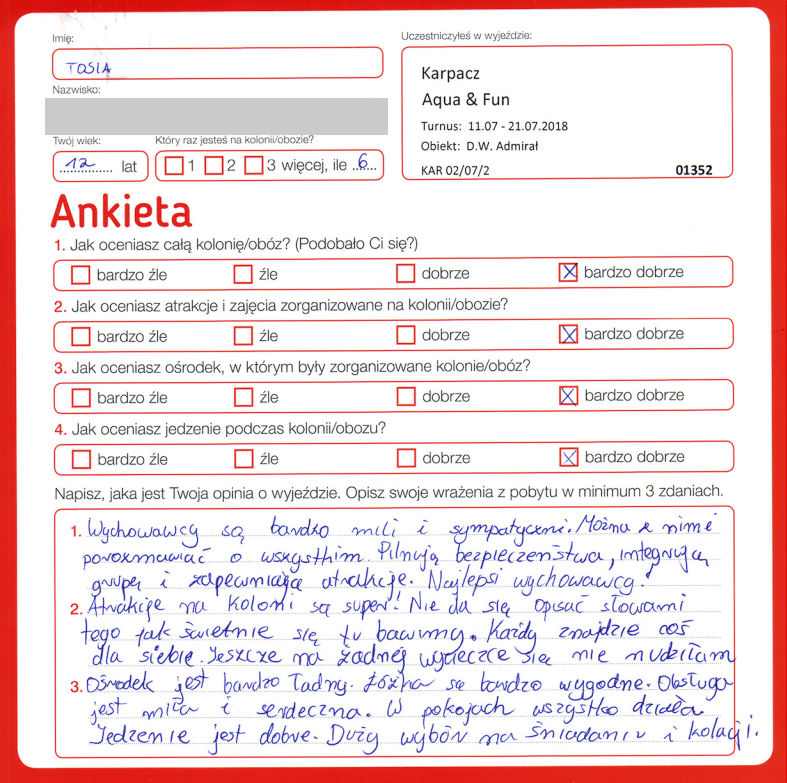 Imię:
TOSIA
Nazwisko:
Twój wiek:
12 lat
Który raz jesteś na kolonii/obozie?
1 2 3 więcej, ile 6
Uczestniczyłeś w wyjeździe:
Karpacz
Aqua & Fun
Turnus: 11.07 - 21.07.2018
Obiekt: D.W. Admirał
KAR 02/07/2 01352
Ankieta
1. Jak oceniasz całą kolonię/obóz? (Podobało Ci się?)
bardzo źle źle dobrze bardzo dobrze
2. Jak oceniasz atrakcje i zajęcia zorganizowane na kolonii/obozie?
bardzo źle źle dobrze bardzo dobrze
3. Jak oceniasz ośrodek, w którym były zorganizowane kolonie/obóz?
bardzo źle źle dobrze bardzo dobrze
4. Jak oceniasz jedzenie podczas kolonii/obozu?
bardzo źle źle dobrze bardzo dobrze
Napisz, jaka jest Twoja opinia o wyjeździe. Opisz swoje wrażenia z pobytu w minimum 3 zdaniach.
1. Wychowawcy są bardzo mili i sympatyczni. Można z nimi
porozmawiać o wszystkim. Pilnują bezpieczeństwa, integrują
grupę i zapewniają atrakcje. Najlepsi wychowawcy!
2. Atrakcje na Koloni są super! Nie da się opisać słowami
tego jak świetnie się tu bawimy. Każdy znajdzie coś
dla siebie. Jeszcze na żadnej wycieczce się nie nudziłam
3. Ośrodek jest bardzo ładny. Łóżka są bardzo wygodne. Obsługa
jest miła i serdeczna. W pokojach wszystko działa
Jedzenie jest dobre. Duży wybór na śniadaniu i kolacji.